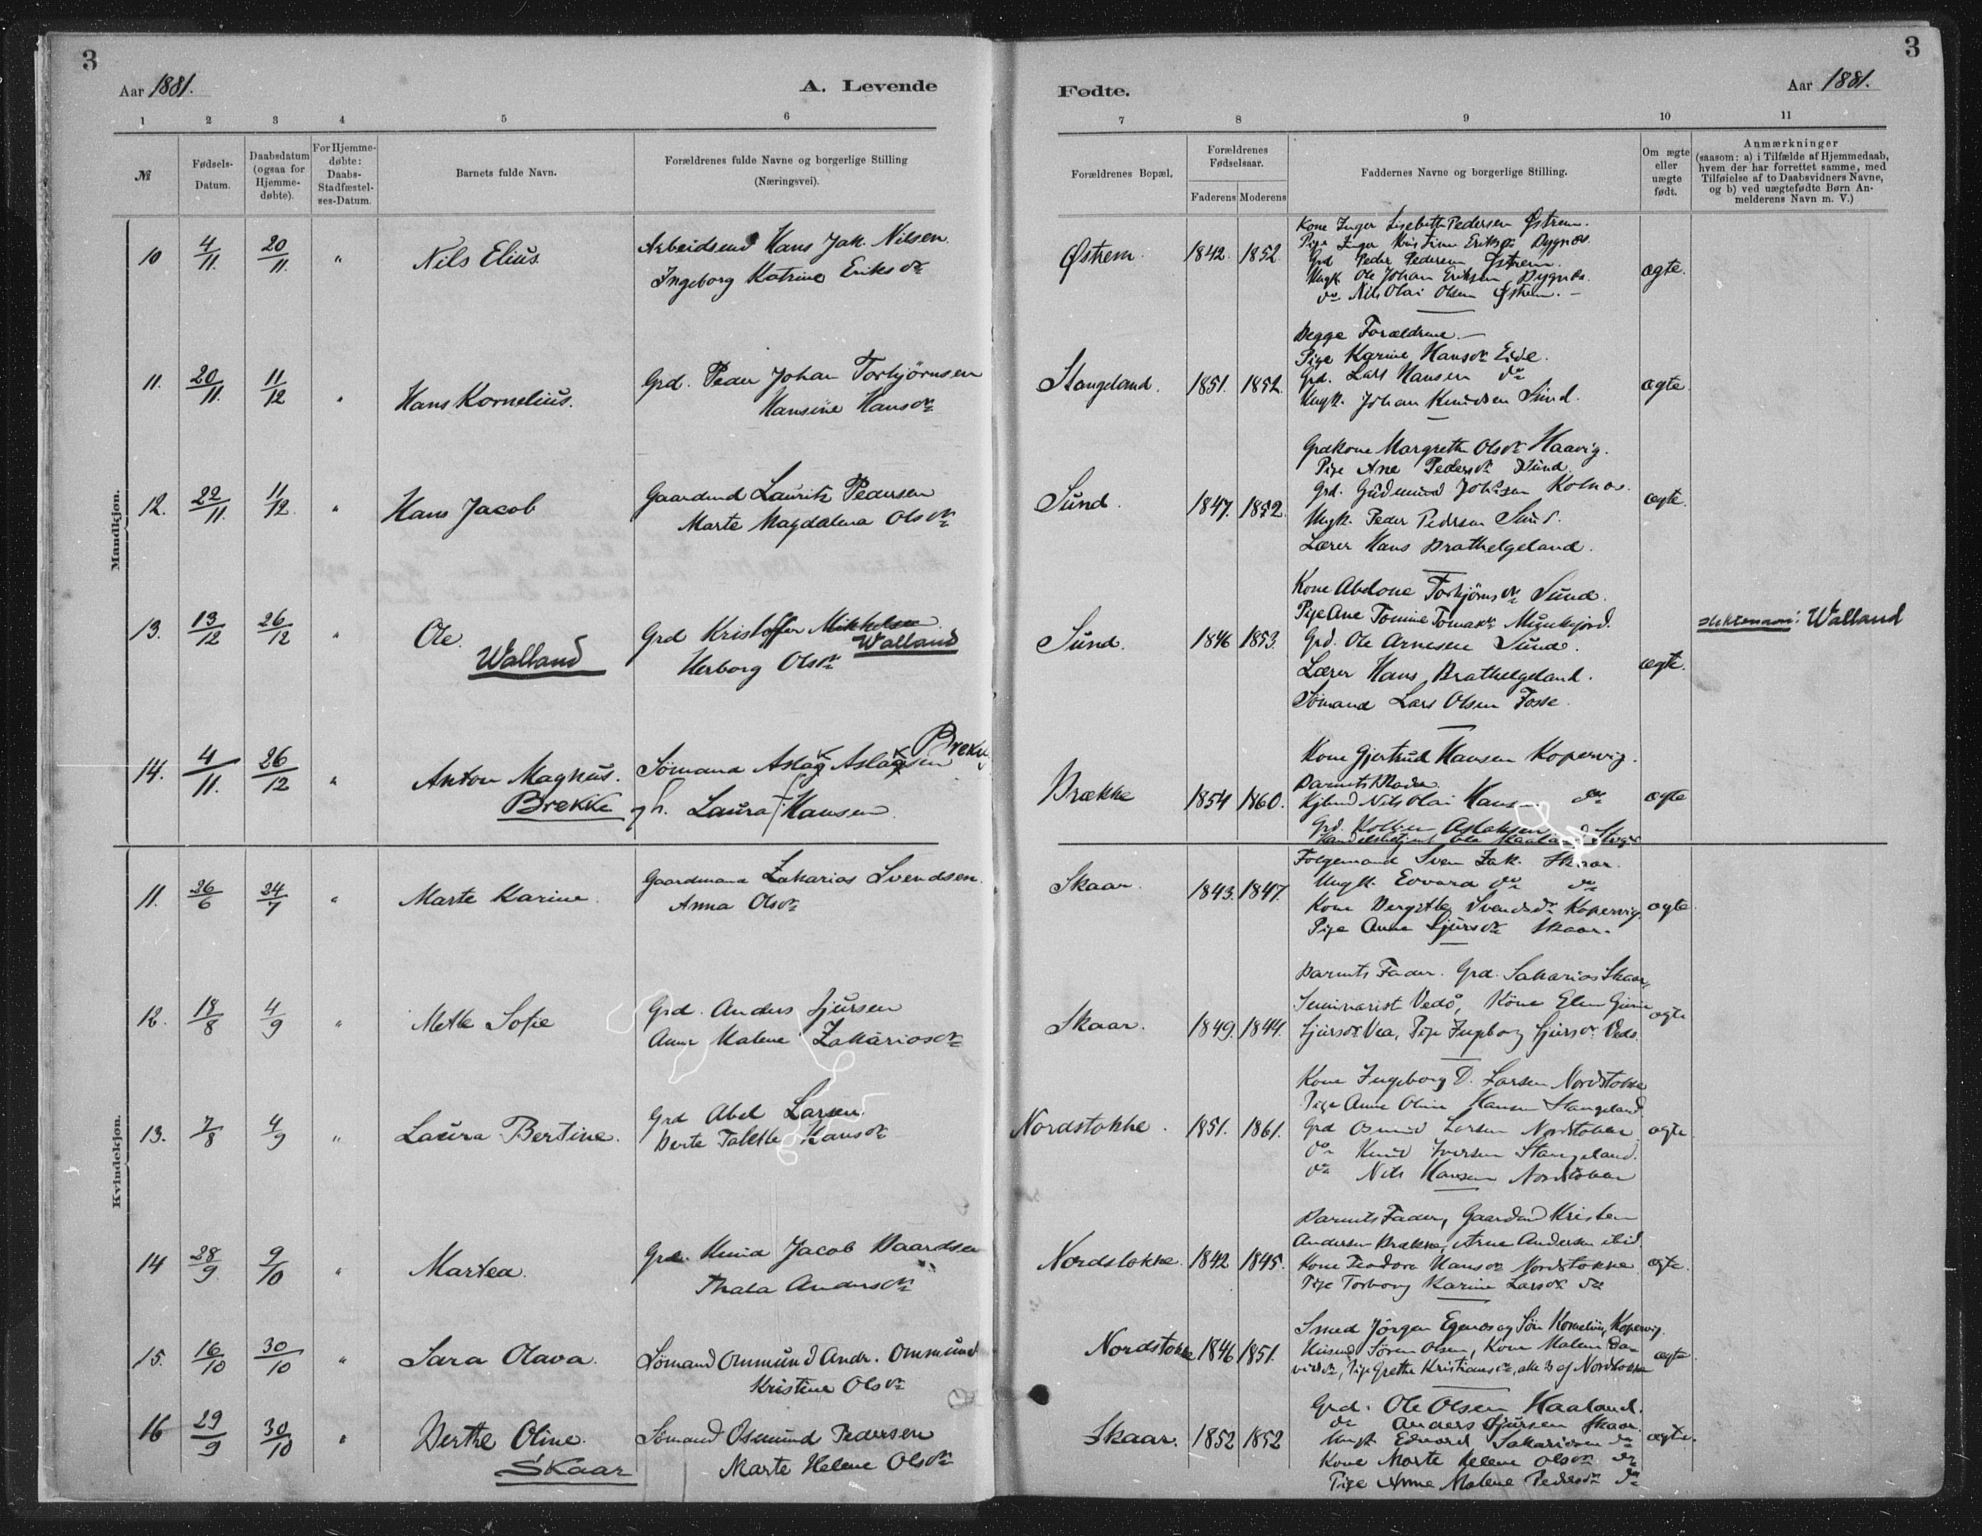 3
Aar 1881.
A. Levende
1 2 3 4 5 6
№
Fødsels-Datum.
Daabsdatum (ogsaa for Hjemme-døbte).
For Hjemme-døbte: Daabs-Stadfæstel-ses-Datum.
Barnets fulde Navn.
Forældrenes fulde Navne og borgerlige Stilling
(Næringsvei).
Mandkjøn.
10 4/11 20/11 " Nils Elius
Arbeidsmd Hans Jak. Nilsen
Ingeborg Katrine Eriksdr
11. 20/11 11/12 " Hans Kornelius.
Grd. Peder Johan Torbjørnsen
Hansine Hansdr
12. 22/11 11/12 " Hans Jacob
Gaardmd Lauritz Pedersen
Marte Magdalena Olsdr
13. 13/12 26/12 " Ole
Walland
Grd Kristoffer Mikkelsen
Walland
Herborg Olsdr
14. 4/11 26/12 " Anton Magnus.
Brekke
Sømand Aslak Aslaksen Brekke
og h. Laura Hansen
Kvindekjøn.
11. 26/6 24/7 " Marte Karine
Gaardmand Zakarias Svendsen
Anna Olsdr
12. 18/8 4/9 " Mette Sofie
Grd. Anders Sjursen
Anne Malene Zakariasdr
13. 7/8 4/9 " Laura Bertine.
Grd Abel Larsen
Berte Talette Hansdr
14 28/9 9/10 " Martea.
Grd. Knud Jacob Baardsen
Thala Andersdr
15. 16/10 30/10 " Sara Olava.
Sømand Ommund Andr. Ommund
Kristine Olsdr
16 29/9 30/10 " Berthe Oline.
Skaar
Sømand Osmund Pedersen
Marte Helene Olsdr
3
Fødte.
Aar 1881.
7 8 9 10 11
Forældrenes Bopæl.
Forældrenes Fødselsaar.
Faderens Moderens
Faddernes Navne og borgerlige Stilling.
Om ægte eller uægte født.
Anmærkninger
(saasom: a) i Tilfælde af Hjemmedaab,
hvem der har forrettet samme, med
Tilføielse af to Daabsvidners Navne,
og b) ved uægtefødte Børn An-
melderens Navn m. V.)
Østrem. 1842. 1852 ægte.
Kone Inger Lisebeth Pedersen Østrem.
Pige Inger Kristine Eriksdr Bygnes
Grd Peder Pedersen Østrem.
Ungk. Ole Johan Eriksen Bygnes
do Nils Olai Olsen Østrem. -
Stangeland. 1851. 1852. ægte
Begge Forældrene -
Pige Karine Hansdr Eide.
Grd. Lars Hansen do
Ungk. Johan Knudsen Sund.
Sund. 1847. 1852. ægte.
Grdkone Margrethe Olsdr Haavig.
Pige Ane Pedersdr Sund.
Grd. Gudmund Johnsen Kolnes.
Ungk. Peder Pedersen Sund.
Lærer Hans Brathelgeland.
Sund. 1846 1853. ægte. Slektsnavn: Walland
Kone Abelone Torbjørnsdr Sund.
Pige Ane Tomine Tomasdr Munkejord.
Grd. Ole Arnesen Sund.
Lærer Hans Brathelgeland.
Sømand Lars Olsen Fosse.
Brække 1854 1860. ægte
Kone Gjertrud Hansen Kopervig.
Barnets Moder
Kjbmd Nils Olai Hansen do
Grd. Aslaksen
Skaar. 1843. 1847. ægte
Folgemand Sven Zak. Skaar.
Ungk. Edvard do do
Kone Bergitte Svendsdr Kopervig.
Pige Anna Sjursdr Skaar.
Skaar. 1849. 1844. ægte
Barnets Fader. Grd. Sakarias Skaar,
Seminarist Vedø, Kone Elen Gunn
Sjursdr Vea, Pige Ingeborg Sjursdr Vedø
Nordstokke. 1851. 1861. ægte
Kone Ingeborg D. Larsen Nordstokke
Pige Anne Oline Hansen Stangeland
Grd Osmund Larsen Nordstokke
do Knud Iversen Stangeland.
do Nils Hansen Nordstokke
Nordstokke. 1842 1845. ægte.
Barnets Fader, Gaardmd Kristen
Andersen Brække, Arne Andersen ibid.
Kone Teodora Hansdr Nordstokke
Pige Torborg Karine Larsdr do
Nordstokke 1846 1851. ægte
Smed Jørgen Egenes og Søn Kornelius, Kopervig.
Husmd Søren Olsen, Kone Malene Da-
vidsdr, Pige Grethe Kristiansdr, alle 3 af Nordstokke
Skaar. 1852 1852 ægte.
Grd. Ole Olsen Haaland.
do Anders Sjursen Skaar
Ungk Edvard Sakariasen do
Kone Marte Helene Olsdr do
Pige Anne Malene Pedersdr do